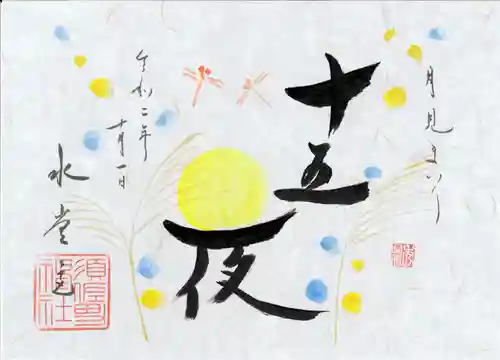 月見まいり
十五夜
令和二年
十月一日
水堂
須佐男
神社